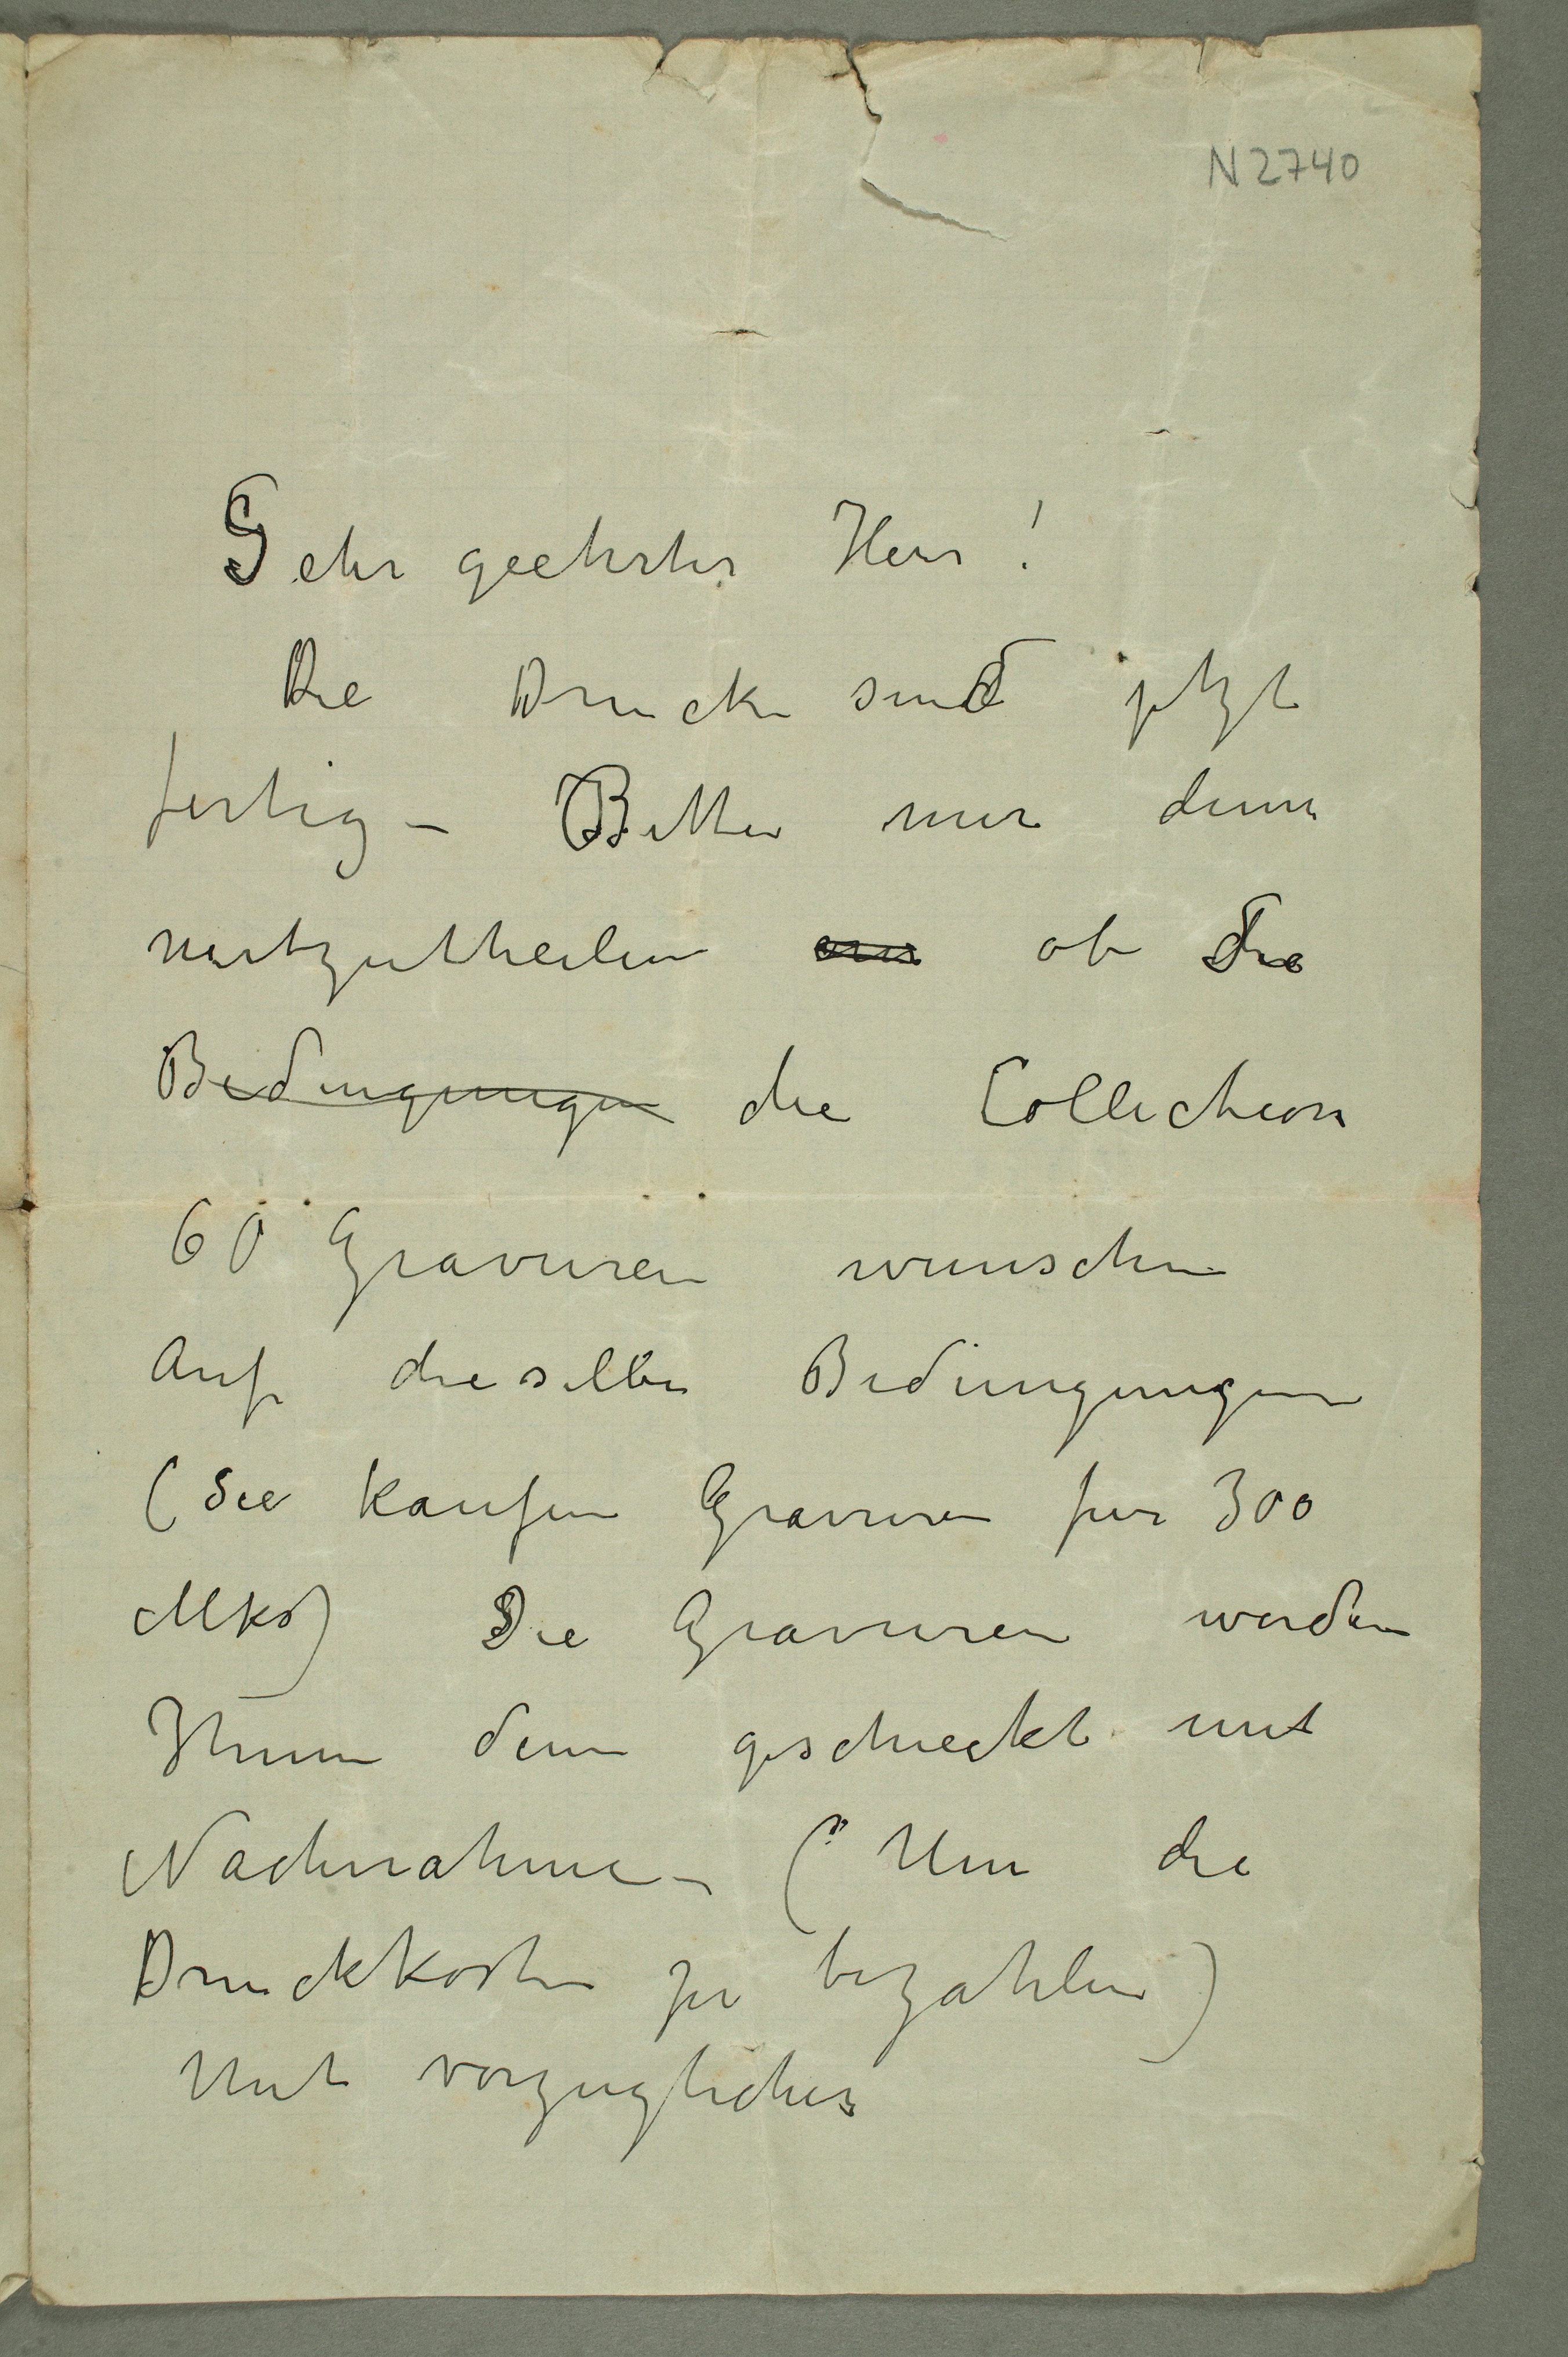 N 2740
Sehr geehrter Herr!
Die Drucke sind jetzt
fertig – Bitte mir denn
mitzutheilen ob Sie
Bedingungen die Collection
60 Gravuren wunschen
Auf dieselben Bedingungen
(Sie kaufen Gravuren fur 300
Mks) Die Gravuren werden
Ihnen denn geschieckt mit
Nachnahme – (Um die
Druckkosten zu bezahlen)
Mit vorzuglicher